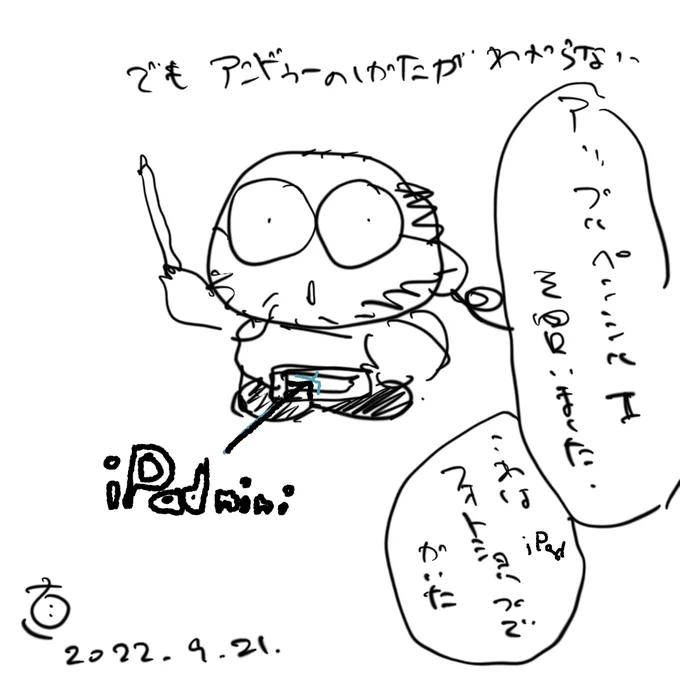 でも アンドゥーのしかたが わからない
アップルペンシル
これは iPad
フォトショップで
かいた
iPad mini
2022.9.21.